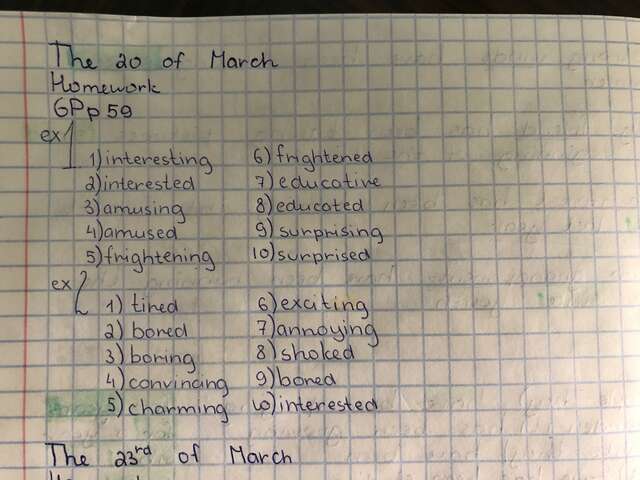 The 20 of March
Homework
GPp 59
ex 1
1) interesting 6) frightened
2) interested 7) educative
3) amusing 8) educated
4) amused 9) surprising
5) frightening 10) surprised
ex 2
1) tired 6) exciting
2) bored 7) annoying
3) boring 8) shoked
4) convincing 9) bored
5) charming 10) interested
The 23rd of March